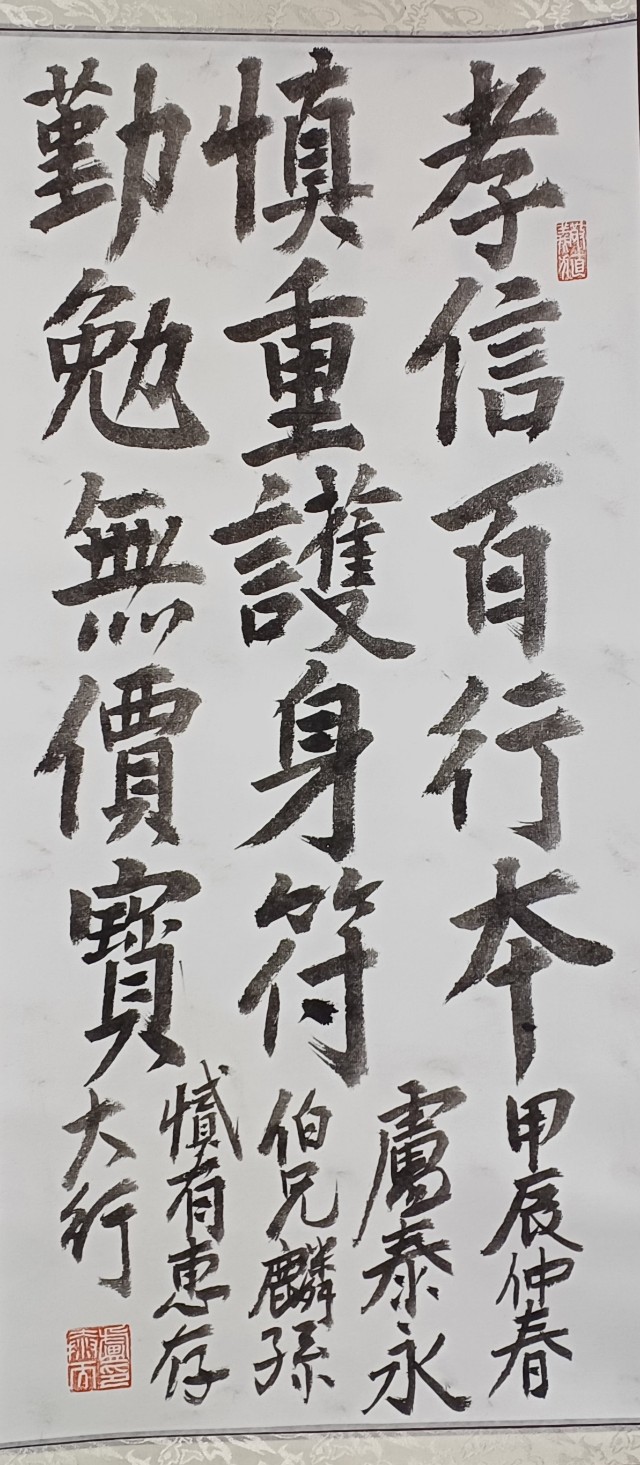 孝信百行本
慎重護身符
勤勉無價寶
甲辰仲春
盧泰永
伯兄麟孫
有惠存
大行